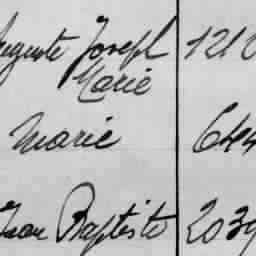 Auguste Joseph 1210
Marie
Marie 644
Jean Baptiste 2039